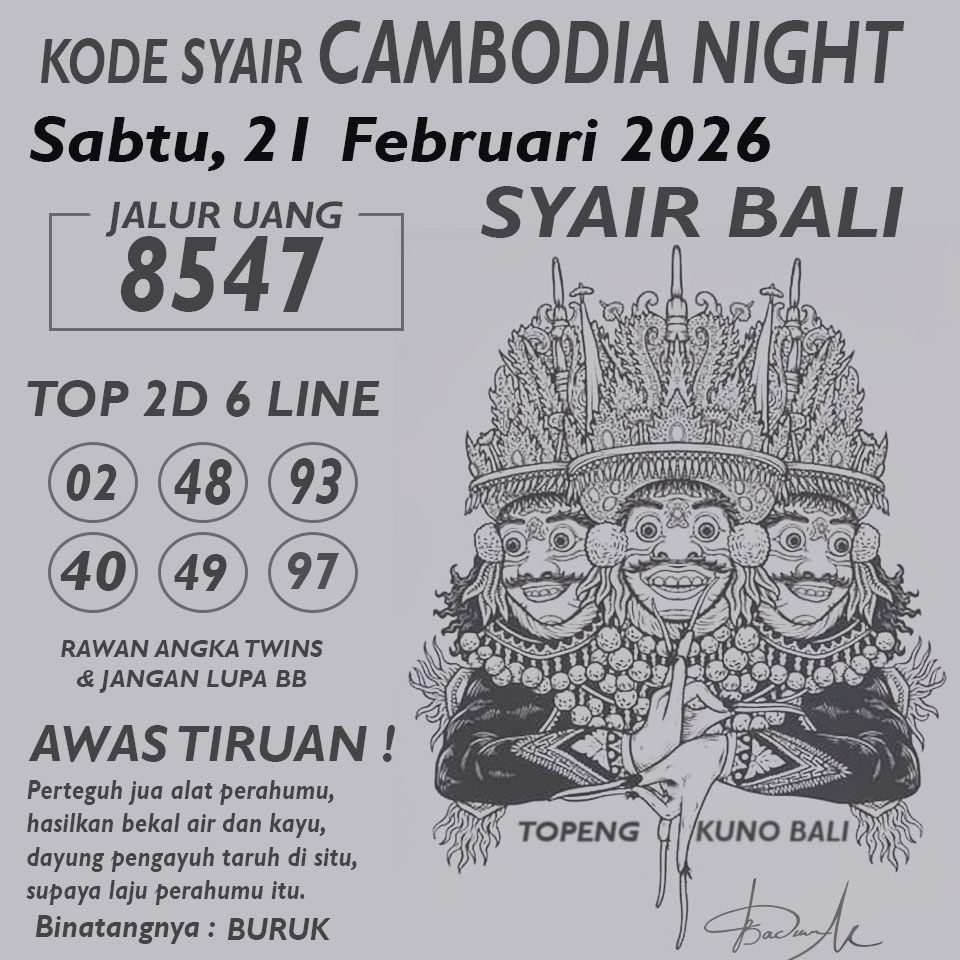 KODE SYAIR CAMBODIA NIGHT
Sabtu, 21 Februari 2026
SYAIR BALI
JALUR UANG
8547
TOP 2D 6 LINE
02 48 93
40 49 97
RAWAN ANGKA TWINS
& JANGAN LUPA BB
AWAS TIRUAN !
Perteguh jua alat perahumu,
hasilkan bekal air dan kayu,
dayung pengayuh taruh di situ,
supaya laju perahumu itu.
Binatangnya : BURUK
TOPENG KUNO BALI